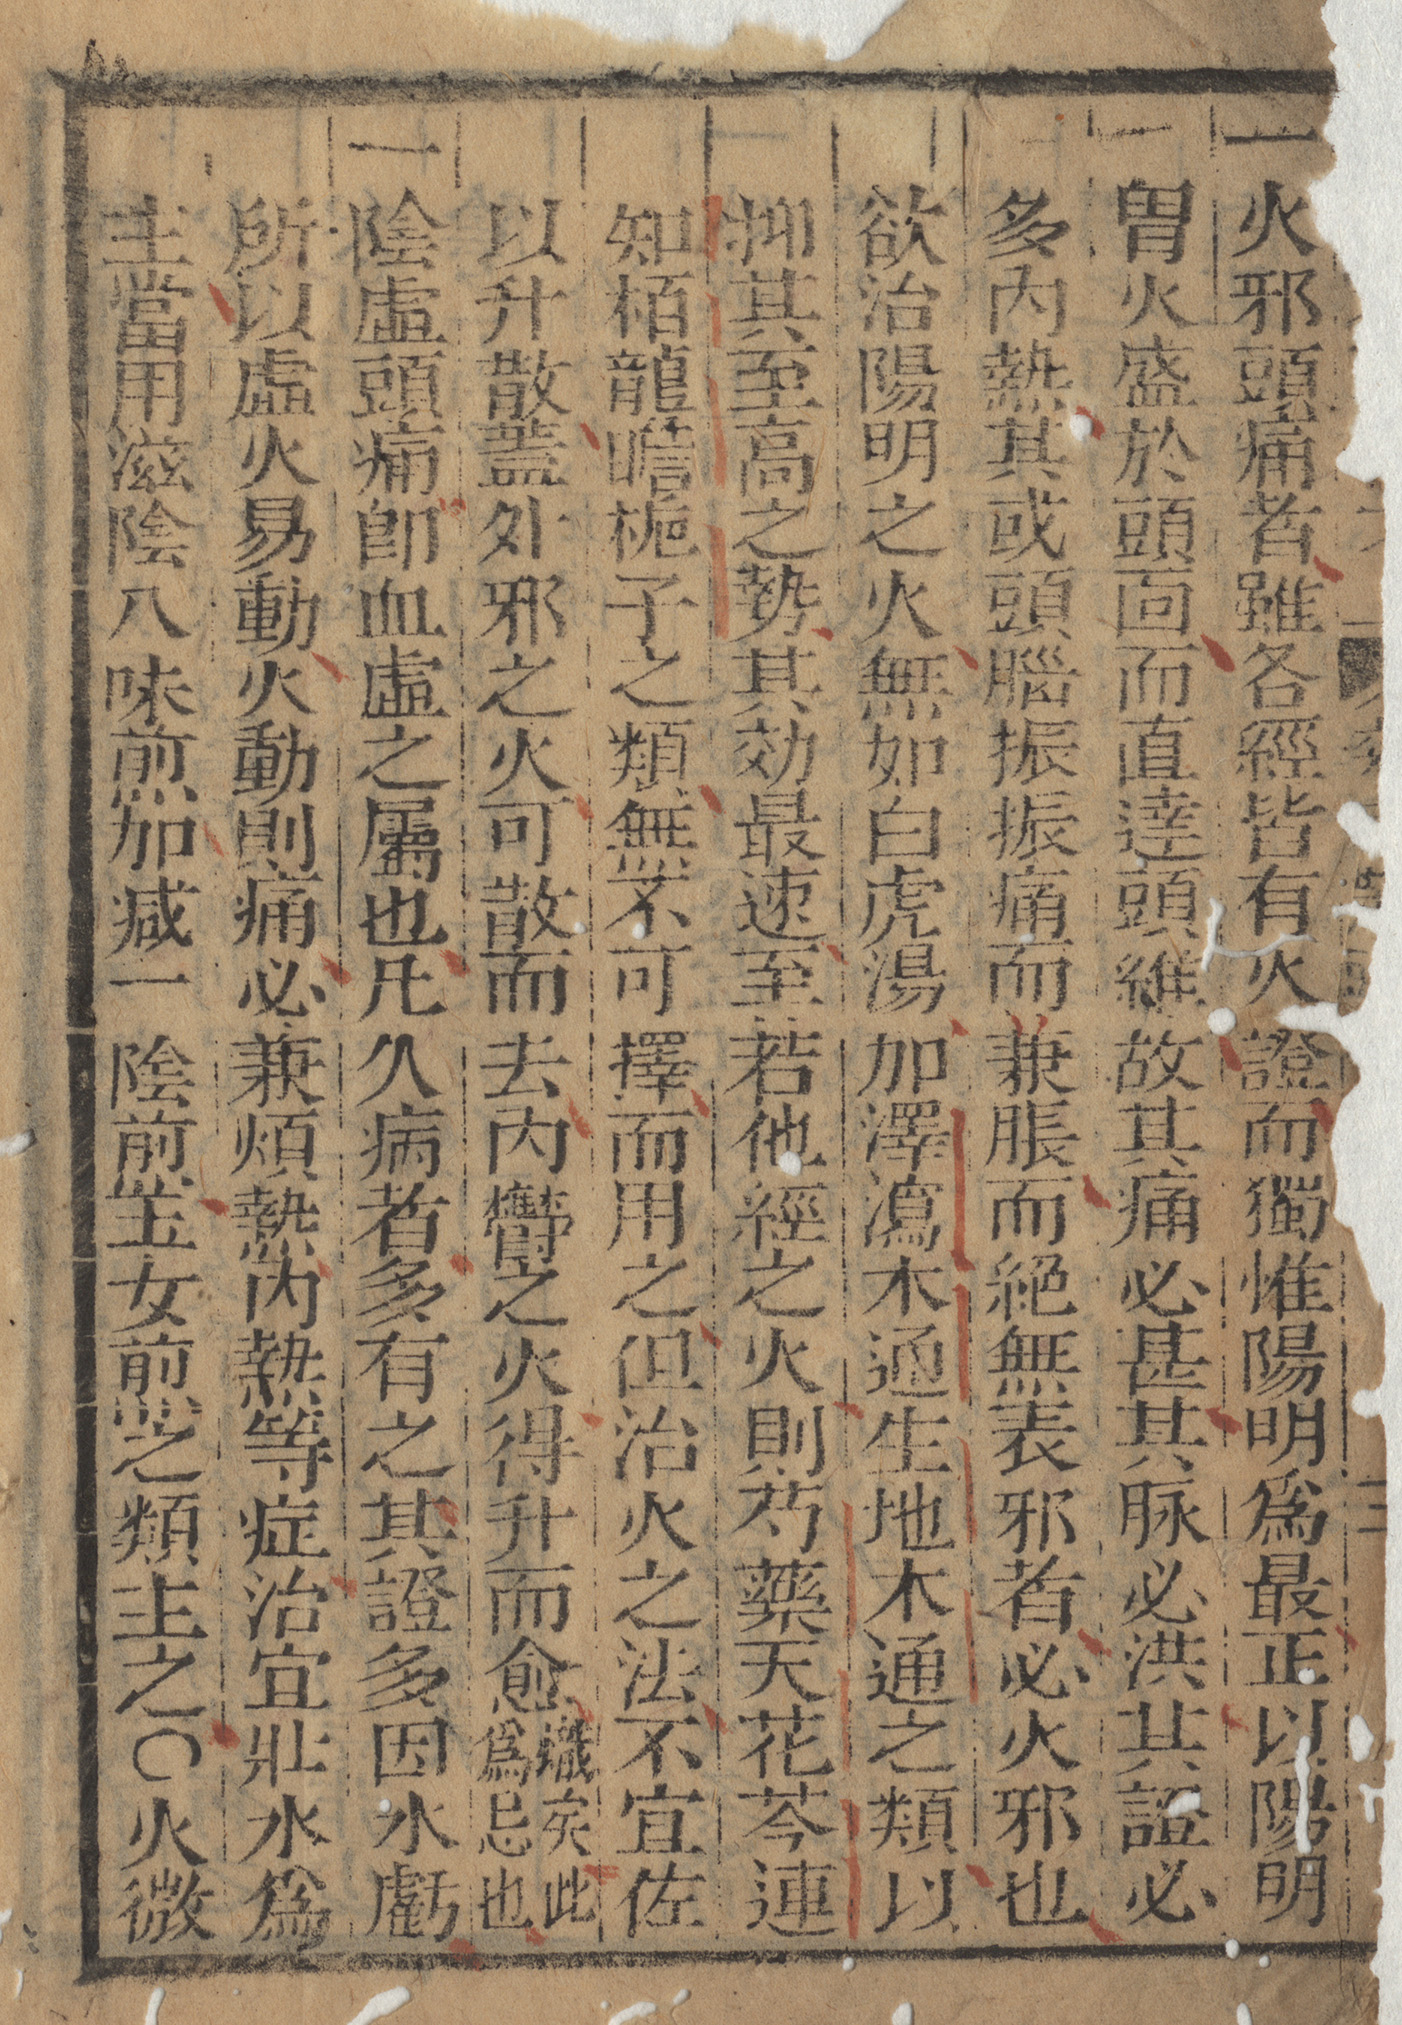 一火邪頭痛者雖各經皆有火證而獨惟陽明爲最正以陽明
胃火盛於頭面而直達頭維故其痛必甚其脉必洪其證必
多內熱其或頭腦振振痛而兼脹而絕無表邪者必火邪也
欲治陽明之火無如白虎湯加澤瀉木通生地木通之類以
抑其至高之勢其効最速至若他經之火則芍藥天花芩連
知栢龍膽梔子之類無不可擇而用之但治火之法不宜佐
以升散蓋外邪之火可散而去內欝之火得升而愈熾矣此
爲忌也
一陰虛頭痛卽血虛之屬也凡久病者多有之其證多因水虧
所以虛火易動火動則痛必兼煩熱內熱等症治宜壯水爲
主當用滋陰八味煎加减一陰煎玉女煎之類主之〇火微